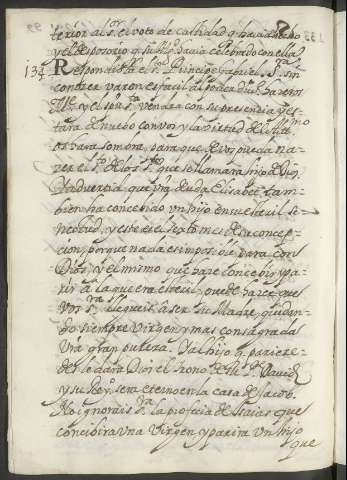 terior al Sr. el voto de castidad q havia hecho
y el desposorio q su Mgd. havia celebrado con ella
134. Respondióla el Sto. Principe Gabriel. Sra. sin
conocer varon es facil al poder divino haceros
Me. y el
vendra con su presencia y es-
tara de nuevo con vos y la virtud del Altmo
os hara sombra, para que de vos pueda na-
zer el Sto. de los Stos. que se llamara hijo de Dios.
Y advertid, que vra. deuda Elisabet tam-
bien ha concevido un hijo en su esteril se-
nectud, y este es el sexto mes de su concep-
cion, porque nada es imposible para con
Dios, y el mismo que haze concebir y pa-
rir a la que era esteril, puede hazer que
vos Sra. llegueis a ser su Madre, quedan-
do siempre Virgen, y mas consagrada
vra. gran pureza. Y al hijo q pariere-
des le dara Dios el trono de su Pe. David
y su Reyno sera eterno en la casa de Jacob.
No ignorais Sra. la profecia de Isaias que
concibira una Virgen, y parira un hijo
que